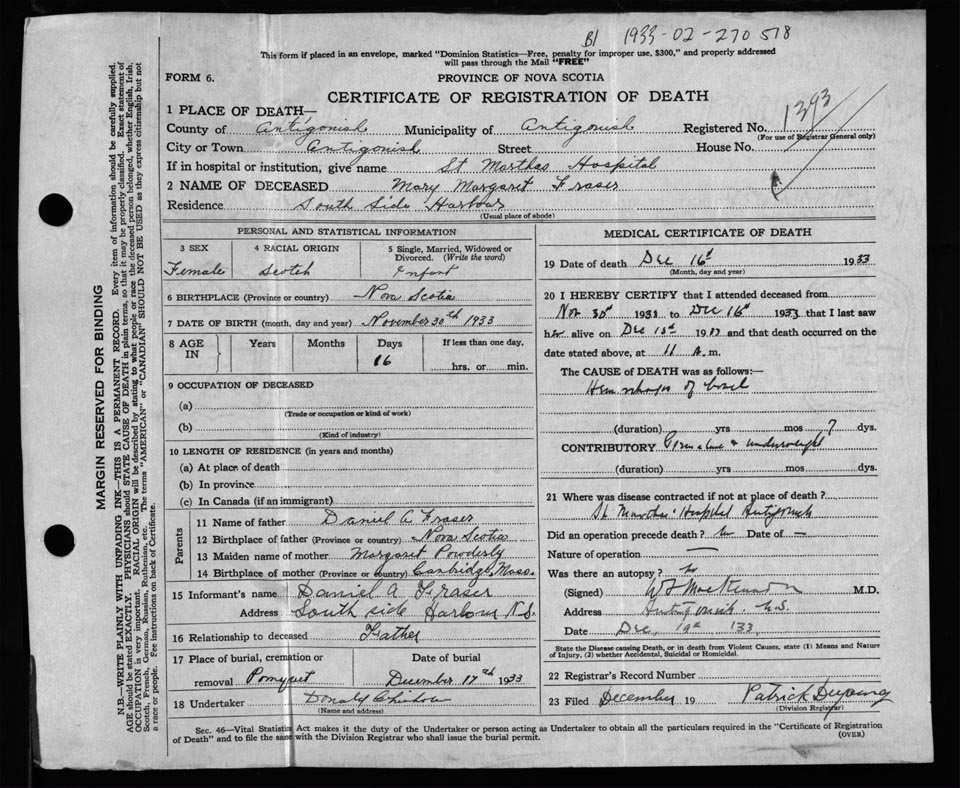 B1 1933-02-270518
This form if placed in an envelope, marked "Dominion Statistics—Free, penalty for improper use, $300," and properly addressed
will pass through the Mail "FREE"
FORM 6. PROVINCE OF NOVA SCOTIA
CERTIFICATE OF REGISTRATION OF DEATH
1 PLACE OF DEATH—
County of Antigonish Municipality of Antigonish Registered No. 1393
(For use of Registrar General only)
City or Town Antigonish Street House No.
If in hospital or institution, give name St Marthas Hospital
2 NAME OF DECEASED Mary Margaret Fraser
Residence South Side Harbour
(Usual place of abode)
MARGIN RESERVED FOR BINDING
N.B.—WRITE PLAINLY WITH UNFADING INK—THIS IS A PERMANENT RECORD. Every item of information should be carefully supplied.
AGE should be stated EXACTLY. PHYSICIANS should STATE CAUSE OF DEATH in plain terms, so that it may be properly classified. Exact statement of
OCCUPATION is very important. RACIAL ORIGIN will be described by stating to what people or race the deceased person belonged, whether English, Irish,
Scotch, French, German, Russian, Ruthenian, etc. The terms "AMERICAN" or "CANADIAN" SHOULD NOT BE USED as they express citizenship but not
a race or people. See instructions on back of Certificate.
PERSONAL AND STATISTICAL INFORMATION
3 SEX 4 RACIAL ORIGIN 5 Single, Married, Widowed or
Divorced. (Write the word)
Female Scotch Infant
6 BIRTHPLACE (Province or country) Nova Scotia
7 DATE OF BIRTH (month, day and year) November 30th 1933
8 AGE IN Years Months Days If less than one day,
16 hrs. or min.
9 OCCUPATION OF DECEASED
(a)
(Trade or occupation or kind of work)
(b)
(Kind of industry)
10 LENGTH OF RESIDENCE (in years and months)
(a) At place of death
(b) In province
(c) In Canada (if an immigrant)
Parents
11 Name of father Daniel A. Fraser
12 Birthplace of father (Province or country) Nova Scotia
13 Maiden name of mother Margaret Powderly
14 Birthplace of mother (Province or country) Cambridge, Mass.
15 Informant's name Daniel A Fraser
Address South side Harbour N.S.
16 Relationship to deceased Father
17 Place of burial, cremation or Date of burial
removal Pomquet December 17th 1933
18 Undertaker Donald
(Name and address)
MEDICAL CERTIFICATE OF DEATH
19 Date of death Dec 16th 1933
(Month, day and year)
20 I HEREBY CERTIFY that I attended deceased from
Nov 30th 1933 to Dec 16th 1933 that I last saw
her alive on Dec 1933 and that death occurred on the
date stated above, at 11 A.m.
The CAUSE OF DEATH was as follows:—
Hemorrhages of bowel
(duration) yrs mos ? dys.
CONTRIBUTORY Premature & underweight
(duration) yrs mos dys.
21 Where was disease contracted if not at place of death?
St Marthas' Hospital Antigonish
Did an operation precede death? no Date of —
Nature of operation —
Was there an autopsy? no
(Signed) M.D.
Address Antigonish N.S.
Date Dec, 19th '33.
State the Disease causing Death, or in death from Violent Causes, state (1) Means and Nature
of Injury, (2) whether Accidental, Suicidal or Homicidal.
22 Registrar's Record Number
23 Filed December 19 Patrick Deyoung
(Division Registrar)
Sec. 46—Vital Statistics Act makes it the duty of the Undertaker or person acting as Undertaker to obtain all the particulars required in the "Certificate of Registration
of Death" and to file the same with the Division Registrar who shall issue the burial permit. (OVER)